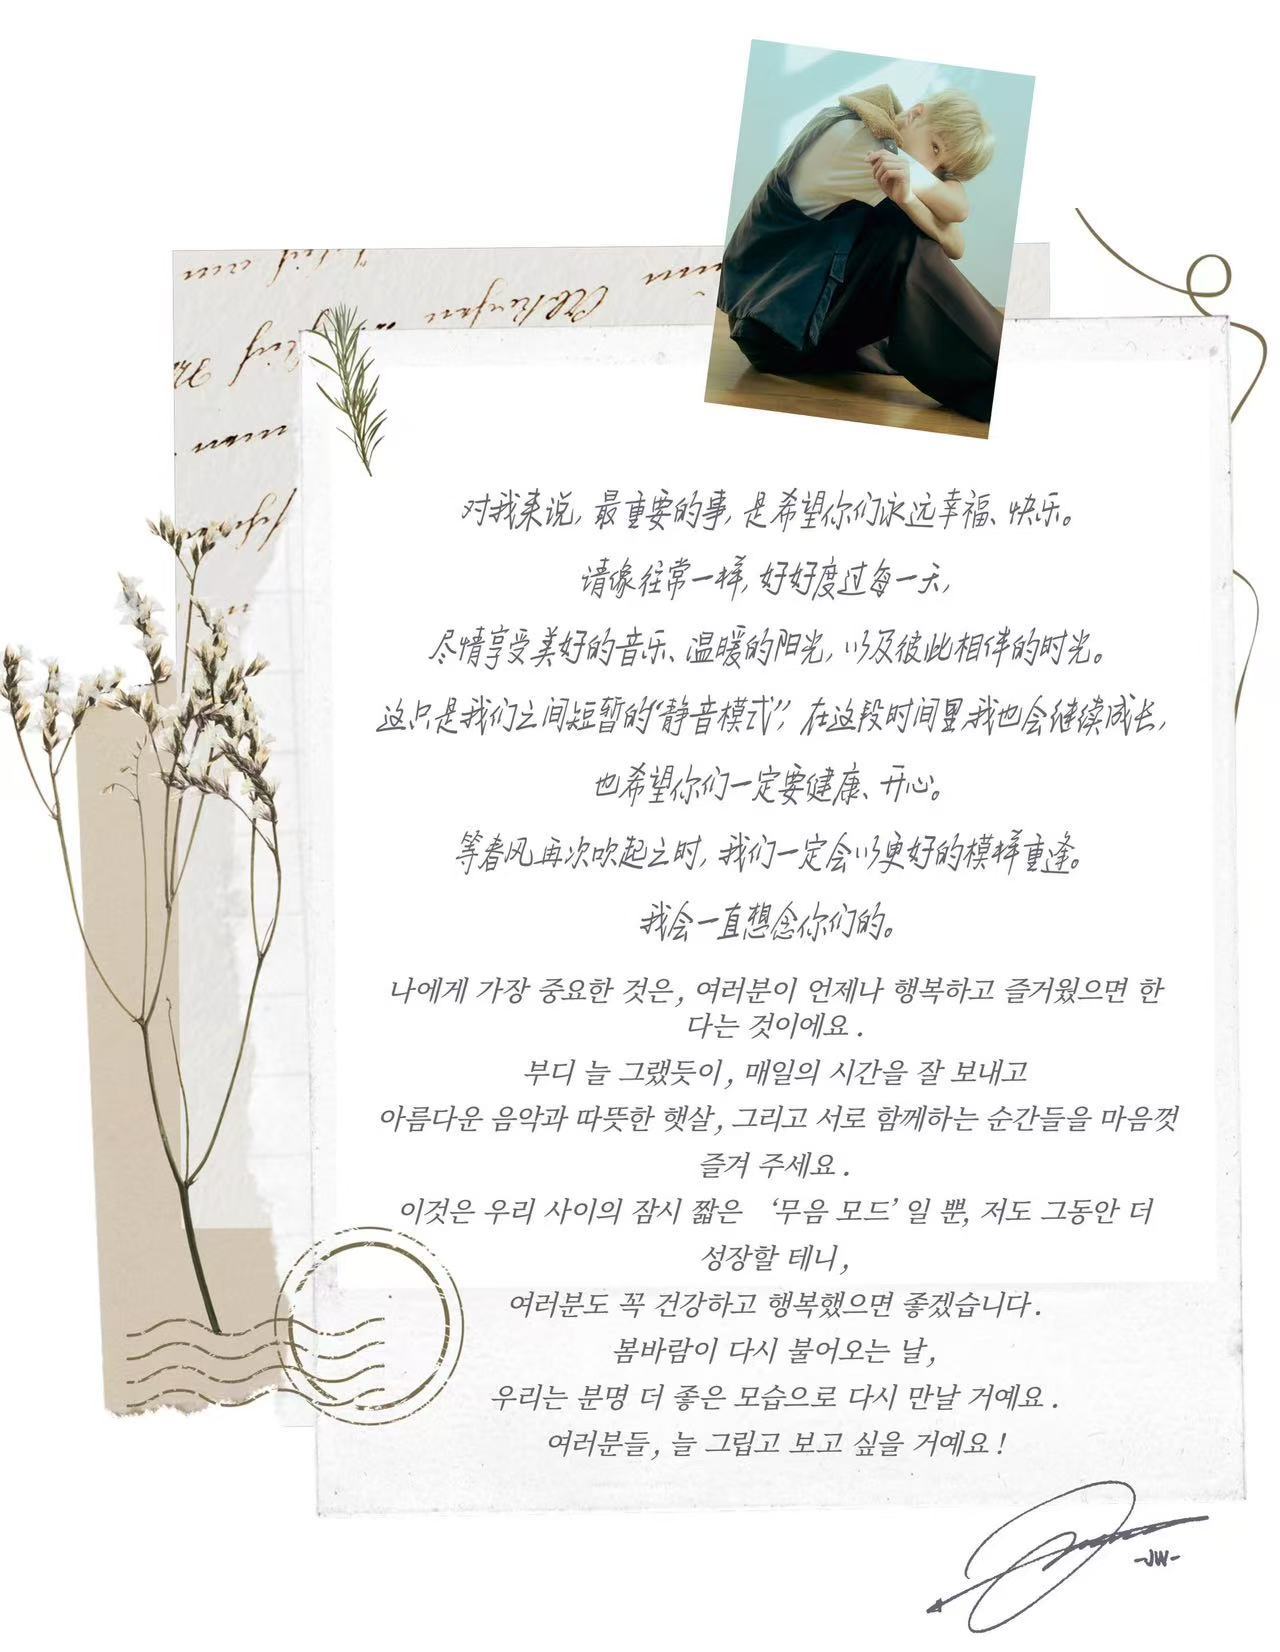 对我来说，最重要的事，是希望你们永远幸福、快乐。
请像往常一样，好好度过每一天，
尽情享受美好的音乐、温暖的阳光，以及彼此相伴的时光。
这只是我们之间短暂的“静音模式”，在这段时间里，我也会继续成长，
也希望你们一定要健康、开心。
等春风再次吹起之时，我们一定会以更好的模样重逢。
我会一直想念你们的。
나에게 가장 중요한 것은, 여러분이 언제나 행복하고 즐거웠으면 한
다는 것이에요.
부디 늘 그랬듯이, 매일의 시간을 잘 보내고
아름다운 음악과 따뜻한 햇살, 그리고 서로 함께하는 순간들을 마음껏
즐겨 주세요.
이것은 우리 사이의 잠시 짧은 ‘무음 모드’일 뿐, 저도 그동안 더
성장할 테니,
여러분도 꼭 건강하고 행복했으면 좋겠습니다.
봄바람이 다시 불어오는 날,
우리는 분명 더 좋은 모습으로 다시 만날 거예요.
여러분들, 늘 그립고 보고 싶을 거예요!
-JW-